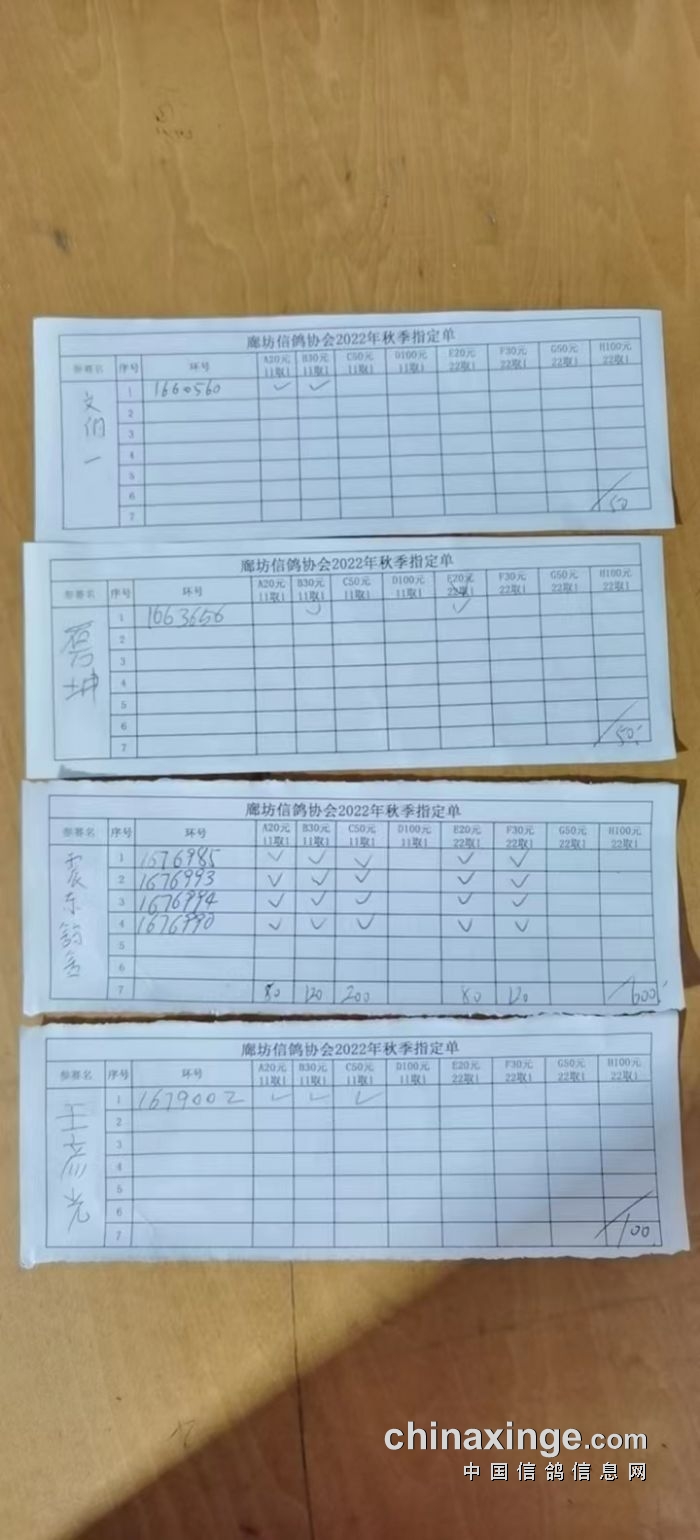 廊坊信鸽协会2022年秋季指定单
参赛名 序号 环号 A20元 11取1 B30元 11取1 C50元 11取1 D100元 11取1 E20元 22取1 F30元 22取1 G50元 22取1 H100元 22取1
文伯一 1 1660560 ✓ ✓
2
3
4
5
6
7 /50
廊坊信鸽协会2022年秋季指定单
参赛名 序号 环号 A20元 11取1 B30元 11取1 C50元 11取1 D100元 11取1 E20元 22取1 F30元 22取1 G50元 22取1 H100元 22取1
坤 1 1663656 ✓ ✓
2
3
4
5
6
7 /50
廊坊信鸽协会2022年秋季指定单
参赛名 序号 环号 A20元 11取1 B30元 11取1 C50元 11取1 D100元 11取1 E20元 22取1 F30元 22取1 G50元 22取1 H100元 22取1
震东 1 1676985 ✓ ✓ ✓ ✓ ✓
2 1676993 ✓ ✓ ✓ ✓ ✓
3 1676994 ✓ ✓ ✓ ✓ ✓
4 1676990 ✓ ✓ ✓ ✓ ✓
5
6
7 80 120 200 80 120 /600
廊坊信鸽协会2022年秋季指定单
参赛名 序号 环号 A20元 11取1 B30元 11取1 C50元 11取1 D100元 11取1 E20元 22取1 F30元 22取1 G50元 22取1 H100元 22取1
王 光 1 1679002 ✓ ✓ ✓
2
3
4
5
6
7 /100
chinaxinge.com
中国信鸽信息网